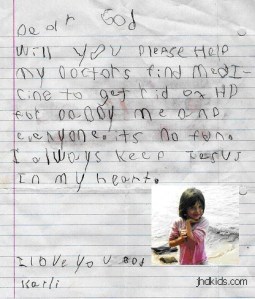 Dear God
Will you please help
my Doctors find MedI-
cine to get rid of HD
for Daddy me and
everyone. its no fun.
I always keep Jesus
In my heart.
I love you God
Karli
jhdkids.com